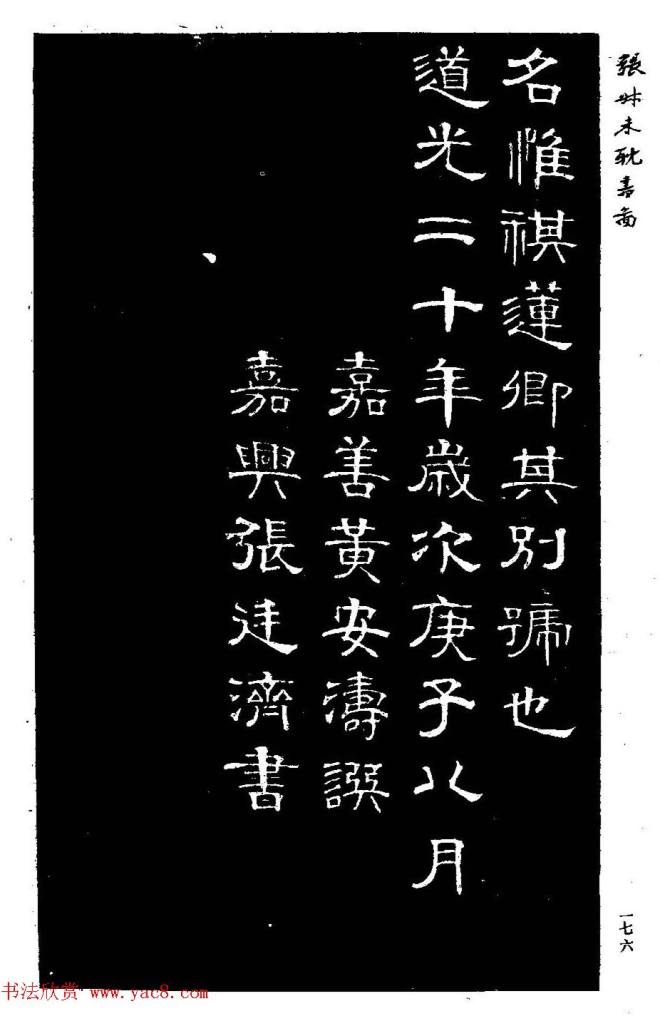 張叔未耽
名惟祺蓮卿其別號也
道光二十年歲次庚子八月
嘉善黃安濤譔
嘉興張廷濟書
一七六
书法欣赏 www.yac8.com